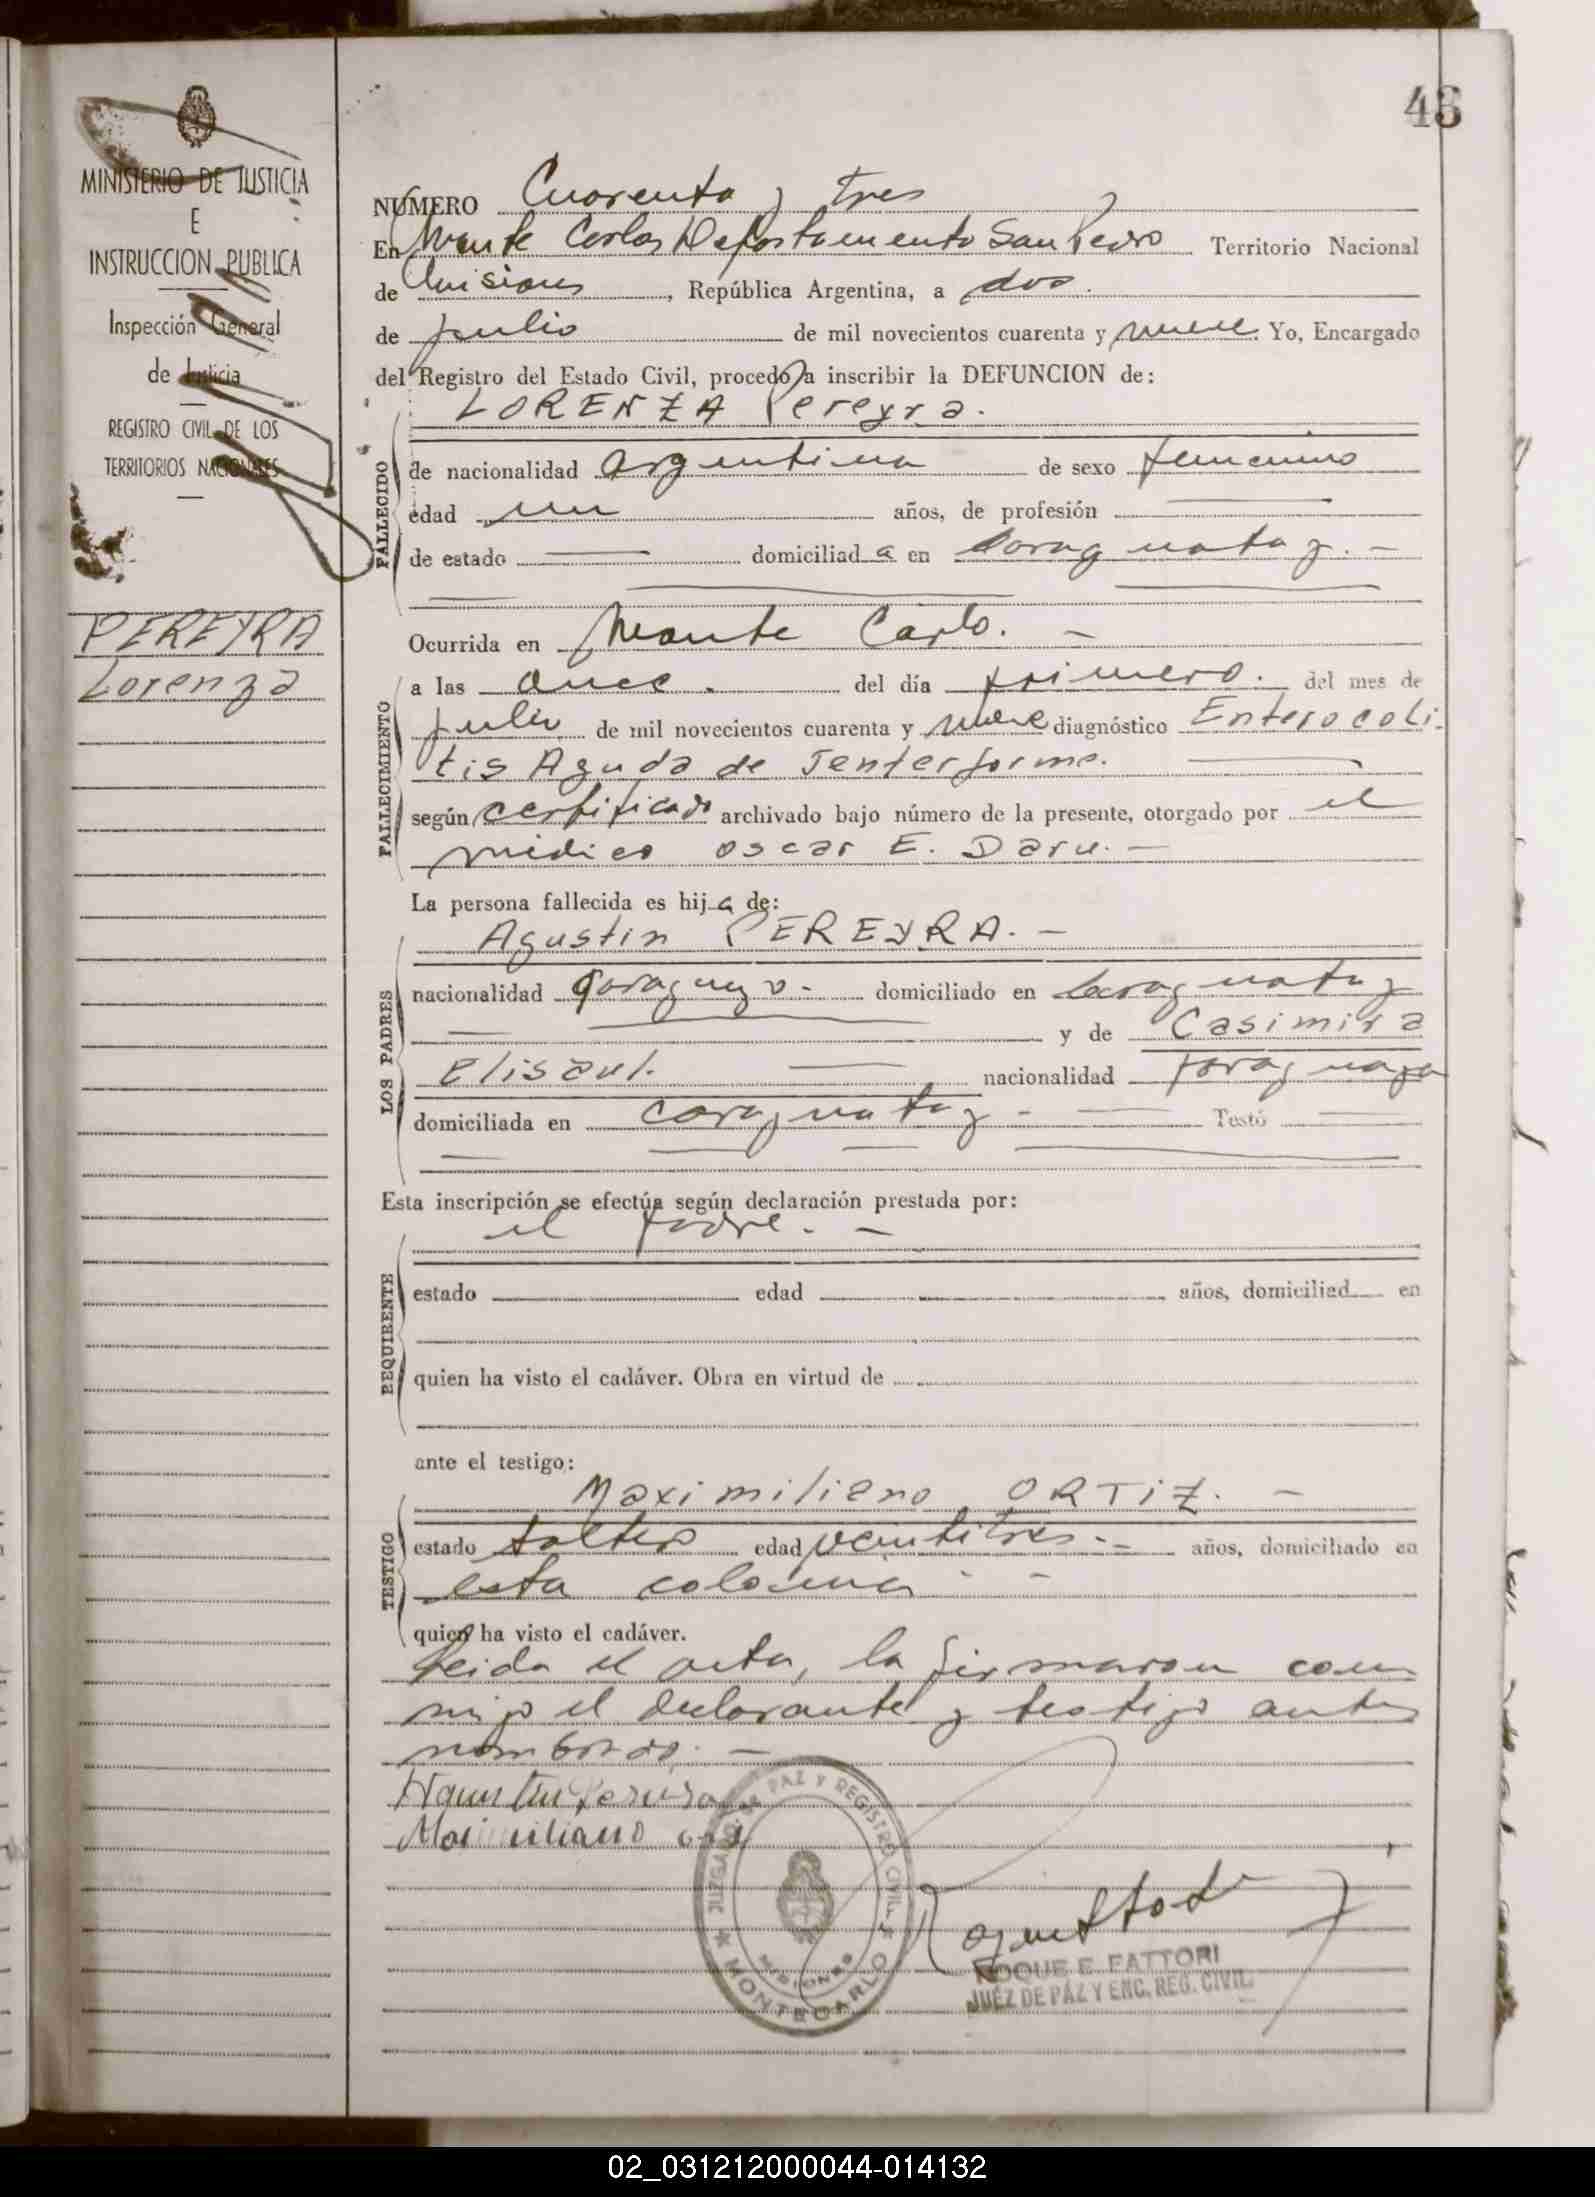 43
MINISTERIO DE JUSTICIA
E
INSTRUCCION PUBLICA
Inspección General
de Justicia
REGISTRO CIVIL DE LOS
TERRITORIOS NACIONALES
PEREYRA
Lorenza
NUMERO Cuarenta y tres
En Monte Carlos Departamento San Pedro Territorio Nacional
de Misiones, República Argentina, a dos
de julio de mil novecientos cuarenta y nueve. Yo, Encargado
del Registro del Estado Civil, procedo a inscribir la DEFUNCION de:
LORENZA Pereyra.
FALLECIDO
de nacionalidad argentina de sexo femenino
edad un años, de profesión
de estado domiciliada en Caraguatay. -
FALLECIMIENTO
Ocurrida en Monte Carlo. -
a las once. del día primero. del mes de
julio de mil novecientos cuarenta y nueve diagnóstico Enterocoli-
tis Aguda de
según certificado archivado bajo número de la presente, otorgado por el
médico Oscar E. Daru. -
La persona fallecida es hija de:
LOS PADRES
Agustin PEREYRA. -
nacionalidad paraguayo- domiciliado en Caraguatay
y de Casimira
nacionalidad paraguaya
domiciliada en Caraguatay - Testó
Esta inscripción se efectúa según declaración prestada por:
REQUIRENTE
el padre. -
estado edad años, domiciliad en
quien ha visto el cadáver. Obra en virtud de
ante el testigo:
TESTIGO
Maximiliano ORTIZ. -
estado soltero edad veintitres.- años, domiciliado en
esta colonia - -
quien ha visto el cadáver.
Leida el acta, la firmaron con
migo el declarante y testigo antes
nombrado. -
Agustin Pereyra
Maximiliano
JUZGADO DE PAZ Y REGISTRO CIVIL
MISIONES
MONTECARLO
ROQUE E. FATTORI
JUEZ DE PAZ Y ENC. REG. CIVIL
02_031212000044-014132